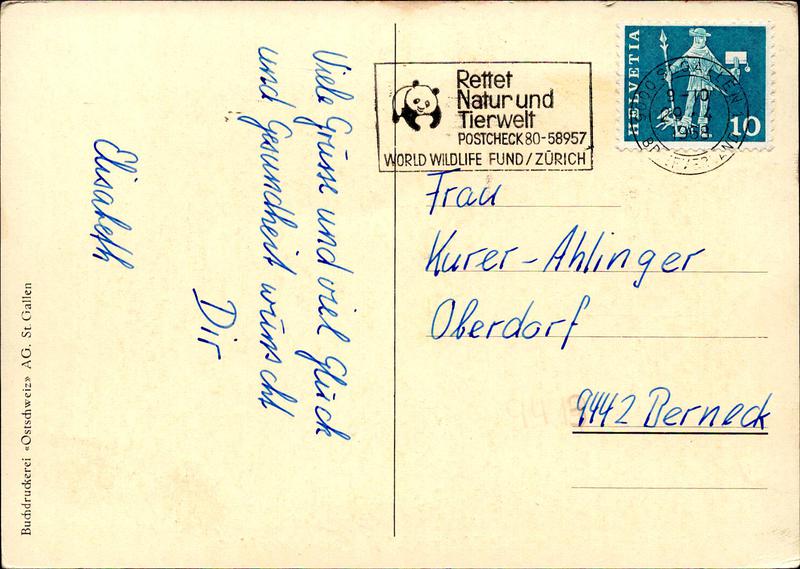 Viele Grüsse und viel Glück
und Gesundheit wünscht
Dir
Elisabeth
Buchdruckerei «Ostschweiz» AG. St. Gallen
Rettet
Natur und
Tierwelt
POSTCHECK 80-58957
WORLD WILDLIFE FUND/ZÜRICH
HELVETIA
10
ST. GALLEN
BRIEFVERSAND
Frau
Kurer-Ahlinger
Oberdorf
9442 Berneck